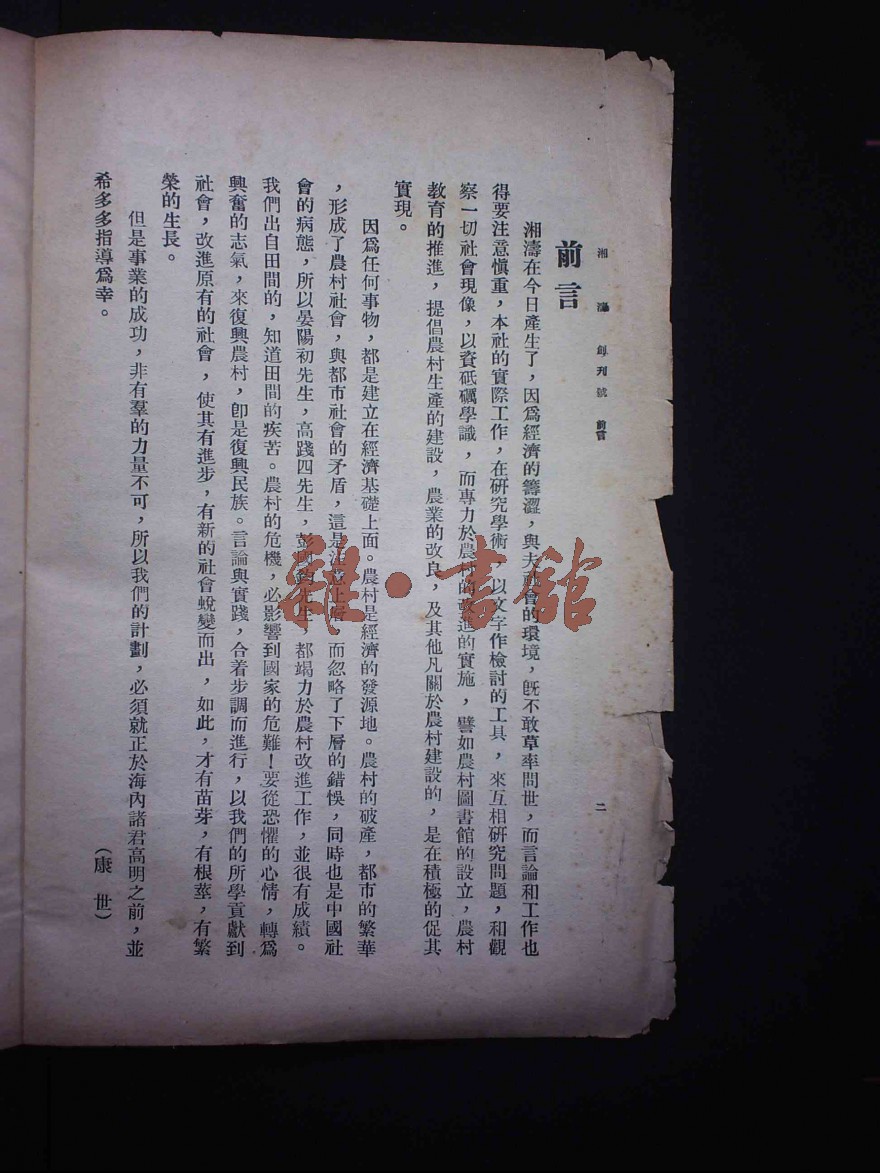 湘濤 創刊號 前言
二
前言
湘濤在今日產生了，因爲經濟的籌澀，與夫社會的環境，旣不敢草率問世，而言論和工作也
得要注意愼重，本社的實際工作，在硏究學術，以文字作檢討的工具，來互相硏究問題，和觀
察一切社會現像，以資砥礪學識，而專力於農村的改進的實施，譬如農村圖書館的設立，農村
教育的推進，提倡農村生產的建設，農業的改良，及其他凡關於農村建設的，是在積極的促其
實現。
因爲任何事物，都是建立在經濟基礎上面。農村是經濟的發源地。農村的破產，都市的繁華
，形成了農村社會，與都市社會的矛盾，這是注意上層，而忽略了下層的錯悞，同時也是中國社
會的病態，所以晏陽初先生，高踐四先生，彭先生，都竭力於農村改進工作，並很有成績。
我們出自田間的，知道田間的疾苦。農村的危機，必影響到國家的危難！要從恐懼的心情，轉爲
興奮的志氣，來復興農村，卽是復興民族。言論與實踐，合着步調而進行，以我們的所學貢獻到
社會，改進原有的社會，使其有進步，有新的社會蛻變而出，如此，才有苗芽，有根莖，有繁
榮的生長。
但是事業的成功，非有羣的力量不可，所以我們的計劃，必須就正於海內諸君高明之前，並
希多多指導爲幸。
（康世）
雜·書館